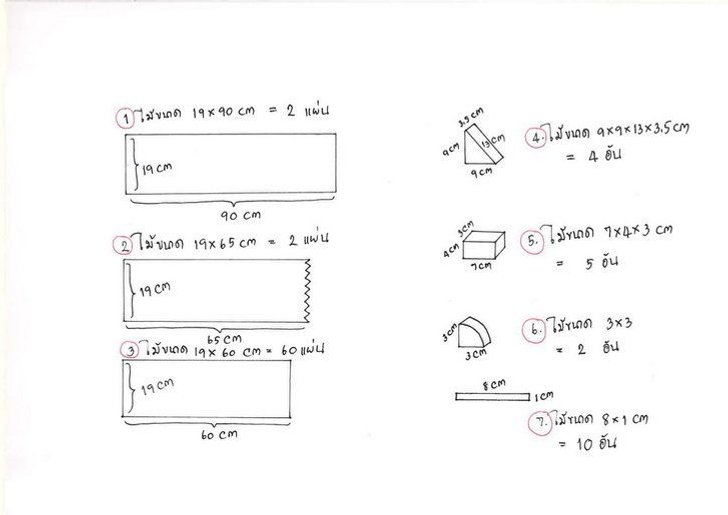 1 ไม้ขนาด 19×90 cm = 2 แผ่น
19 cm
90 cm
2 ไม้ขนาด 19×65 cm = 2 แผ่น
19 cm
65 cm
3 ไม้ขนาด 19×60 cm = 60 แผ่น
19 cm
60 cm
3,5 cm
9 cm
13 cm
9 cm
4. ไม้ขนาด 9×9×13×3.5 cm
= 4 อัน
3cm
4cm
7cm
5. ไม้ขนาด 7×4×3 cm
= 5 อัน
3cm
3cm
6. ไม้ขนาด 3×3
= 2 อัน
8 cm
1 cm
7. ไม้ขนาด 8×1 cm
= 10 อัน